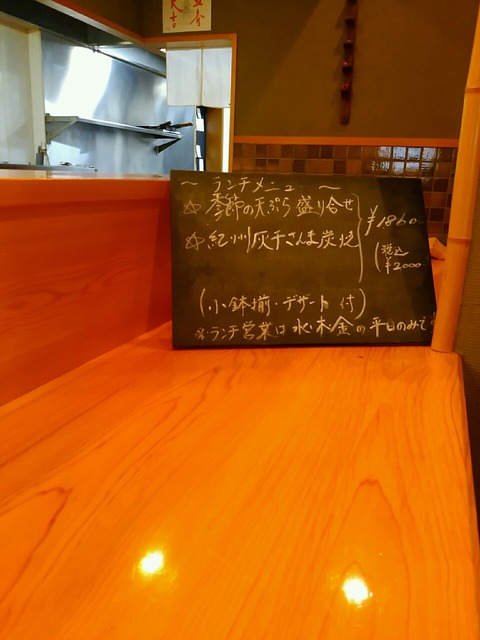 立春
大吉
～ ランチメニュー ～
☆ 季節の天ぷら盛り合せ
☆ 紀州灰干さんま炭焼
¥1860
(税込
¥2000
(小鉢揃・デザート付)
※ランチ営業は水・木・金の平日のみで